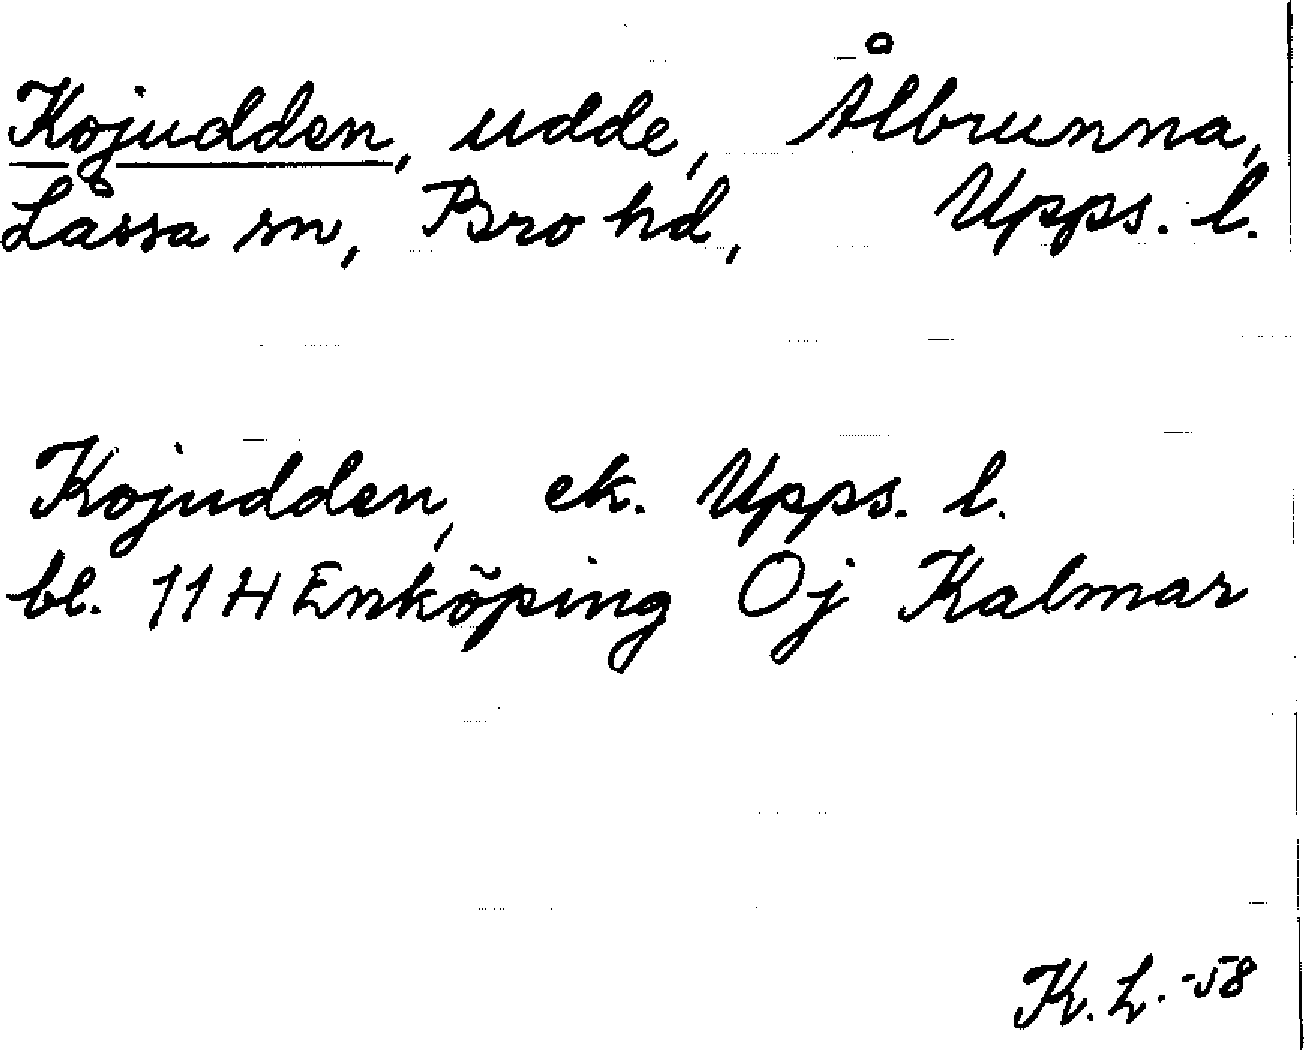 Kojudden, udde, Ålbrunna,
Låssa sn, Bro hd, Upps. l.
Kojudden, ek. Upps. l.
bl. 11 H Enköping Oj Kalmar
K. L. -58